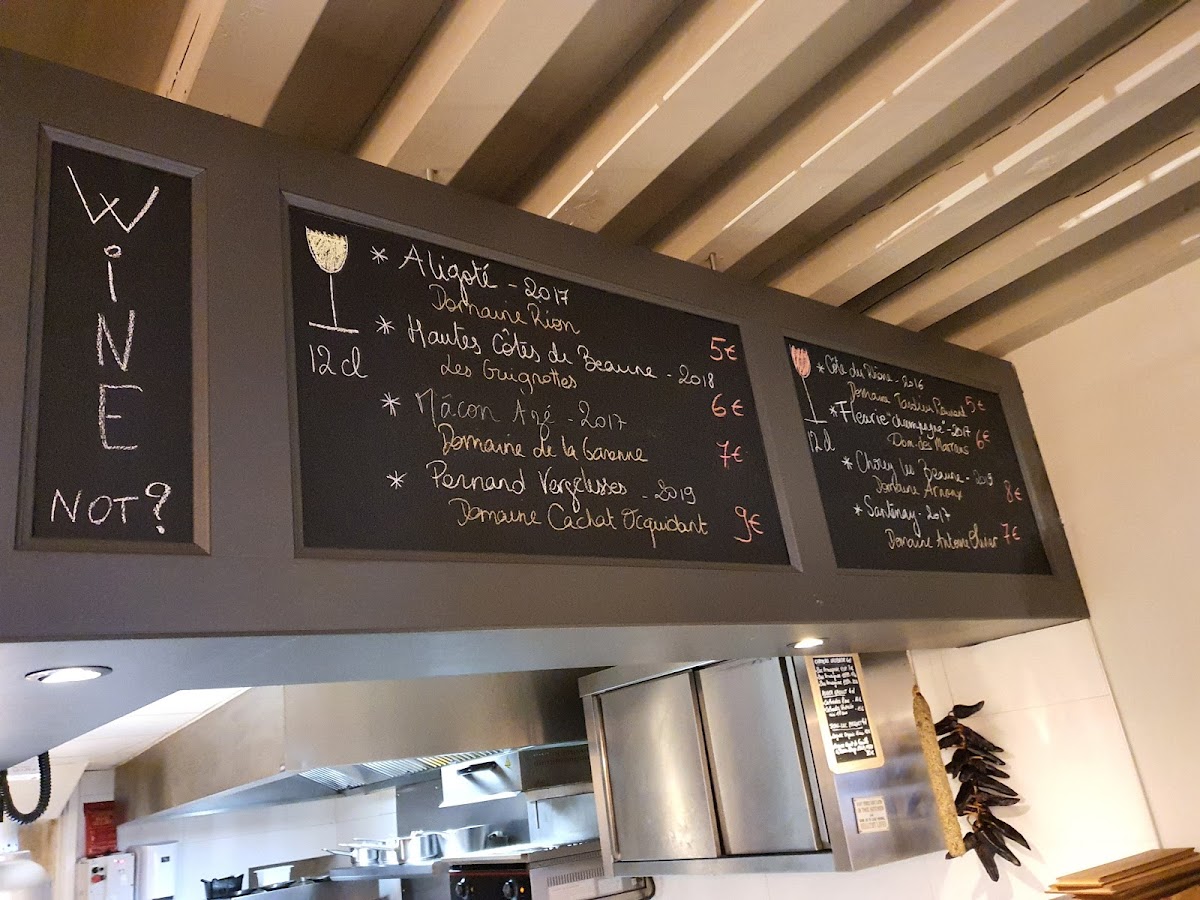 WiNE
NOT?
12 cl
* Aligoté - 2017
Domaine Rion
5€
* Hautes Côtes de Beaune - 2018
Les Guignottes
6€
* Mâcon Azé - 2017
Domaine de la Garenne
7€
* Pernand Vergelesses - 2019
Domaine Cachat Ocquidant
9€
12 cl
* Côte du Rhône - 2016
Domaine Tardieu
5€
* Fleurie "champagne" - 2017
Dom. des Marrans
6€
* Chorey les Beaune - 2019
Domaine Arnoux
8€
* Santenay - 2017
Domaine Antoine Olivier
7€